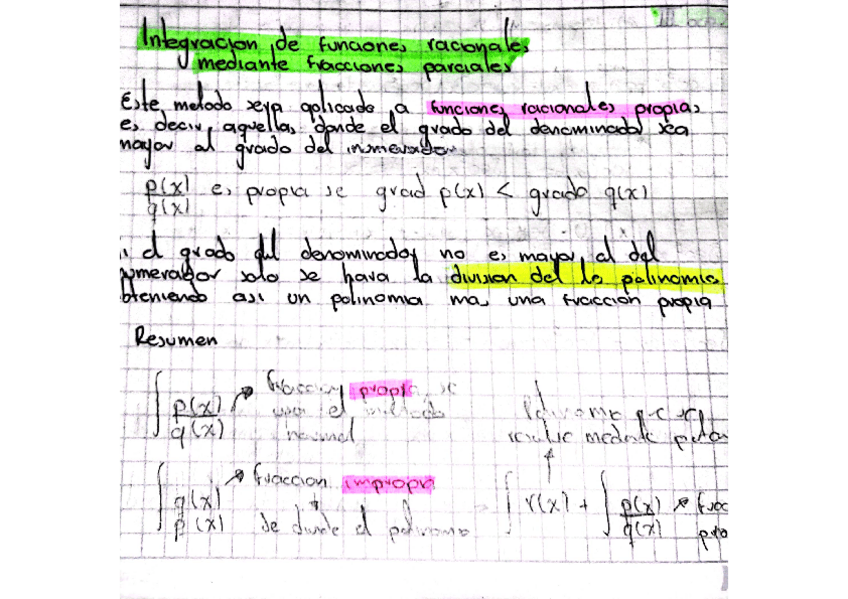 III
Integracion de funciones racionales
mediante fracciones parciales
Este metodo sera aplicado a funciones racionales propias
es decir, aquellas donde el grado del denominador sea
mayor al grado del numerador
p(x)/q(x) es propia se grad p(x) < grado q(x)
el grado del denominador no es mayor al del
umerador solo se hara la division del lo polinomio
bteniendo asi un polinomia mas una fraccion propia
Resumen
∫ p(x)/q(x) → fraccion propia se
usa el metodo
normal
∫ q(x)/p(x) → fraccion impropi
se divide el polinomio
∫ r(x) + ∫ p(x)/q(x) → frac
pro